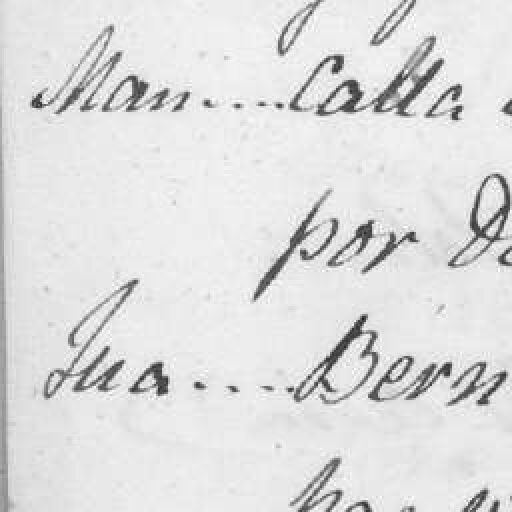 Man....Calla
por
Jua....Bern